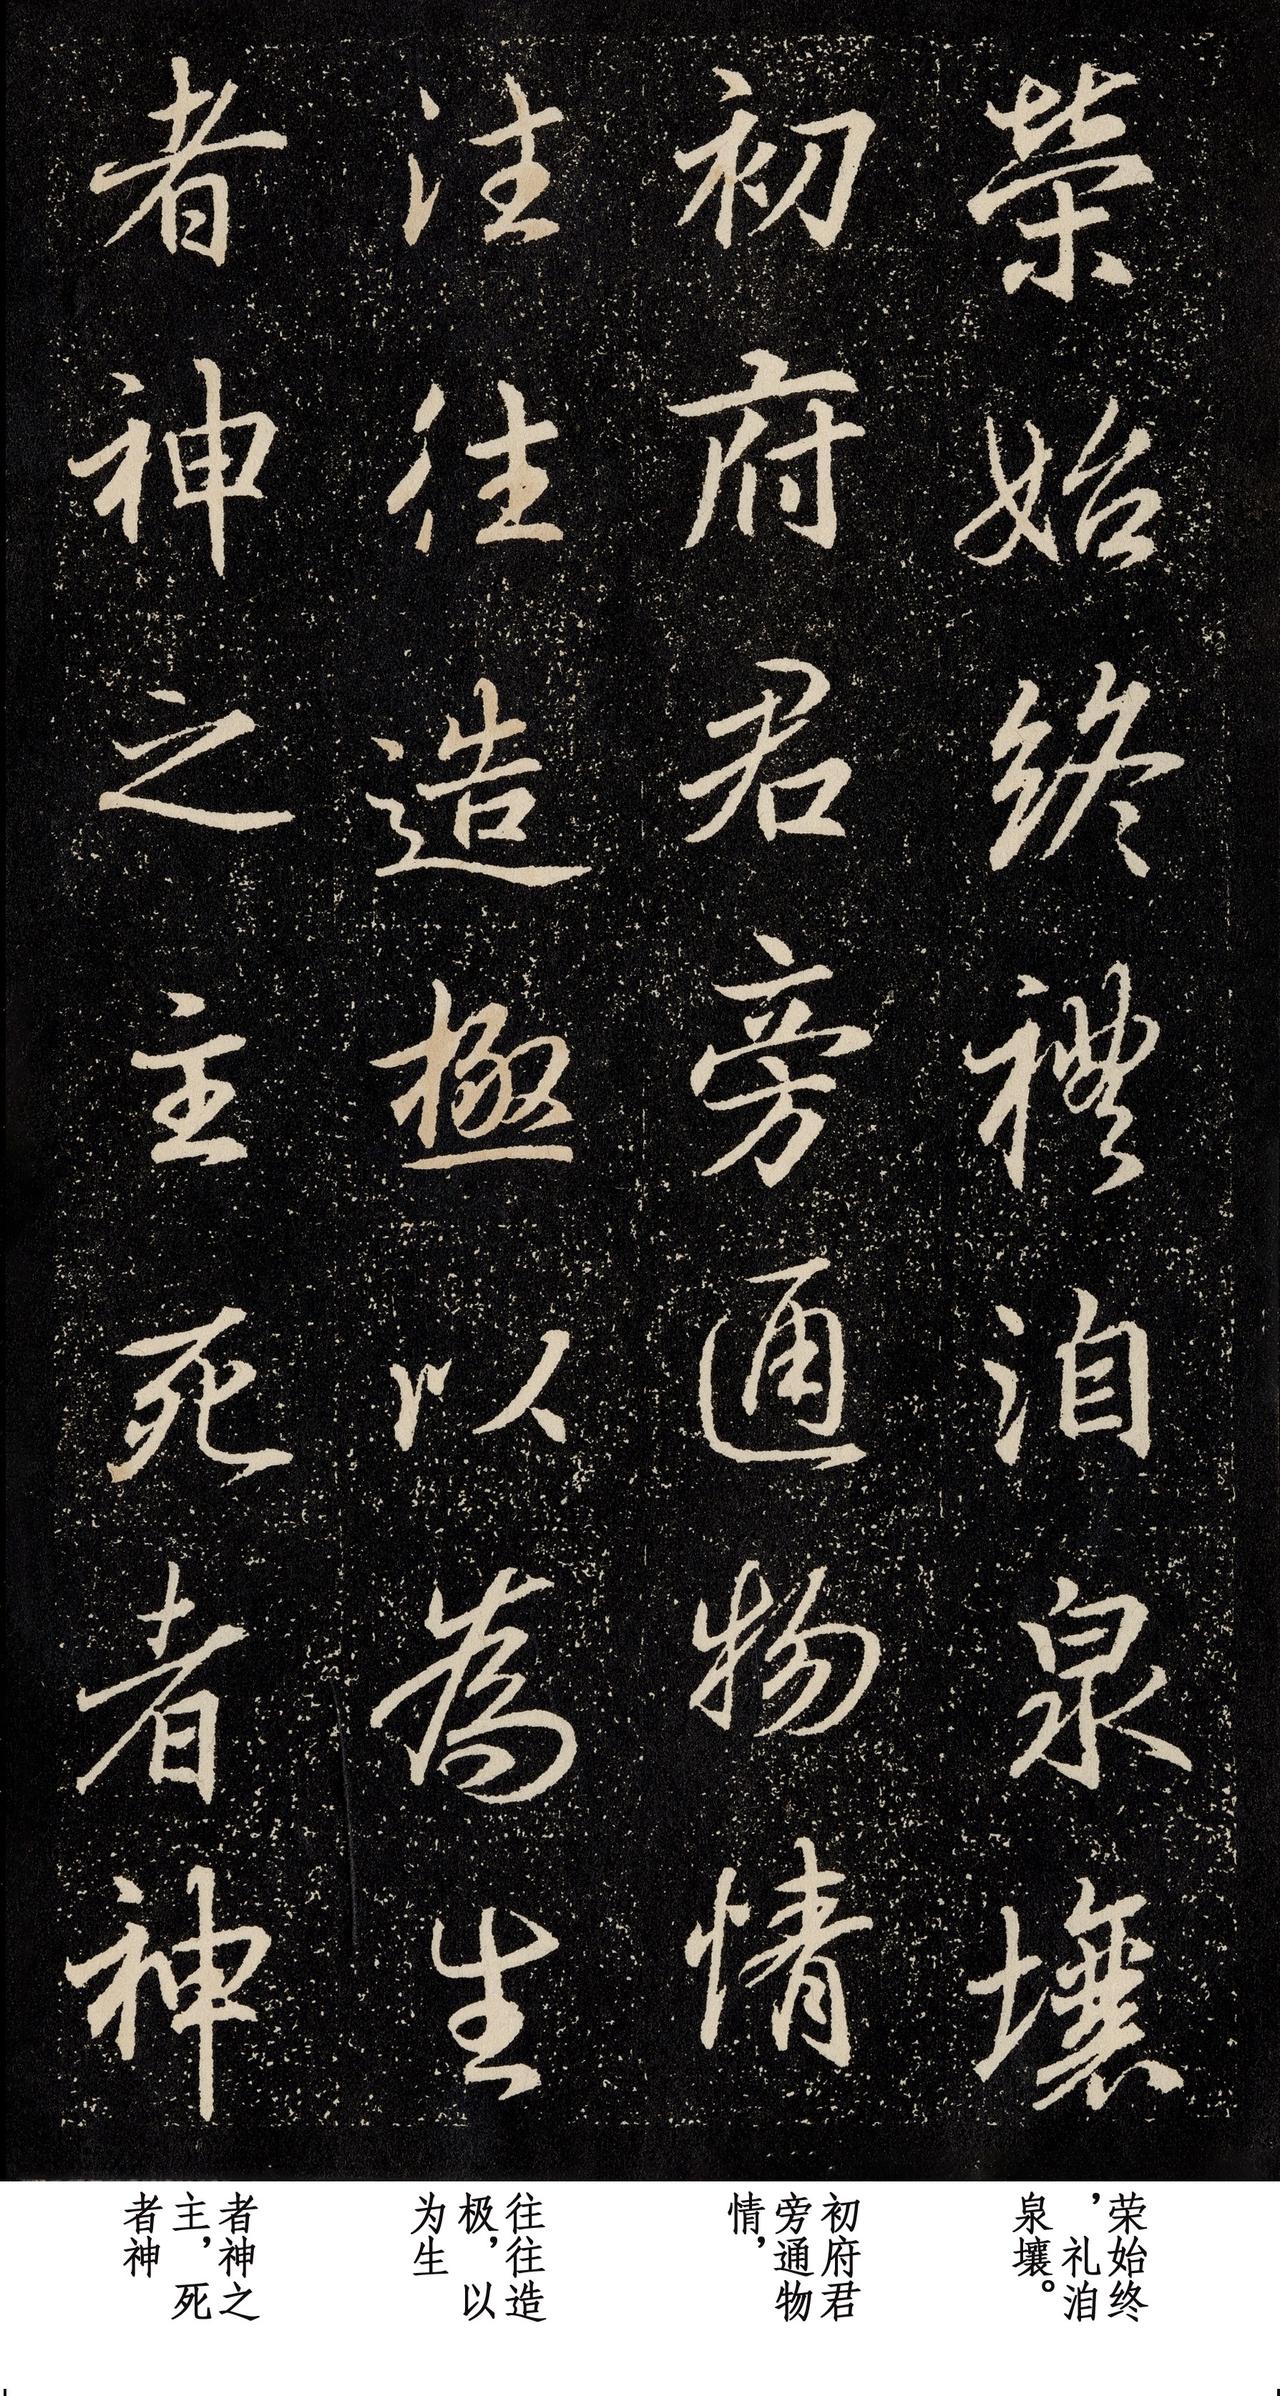 荣始终禮洎泉壤
初府君旁通物情
往往造極以為生
者神之主死者神
荣始终
，礼洎
泉壤。
初府君
旁通物
情，
往往造
极，以
为生
者神之
主，死
者神